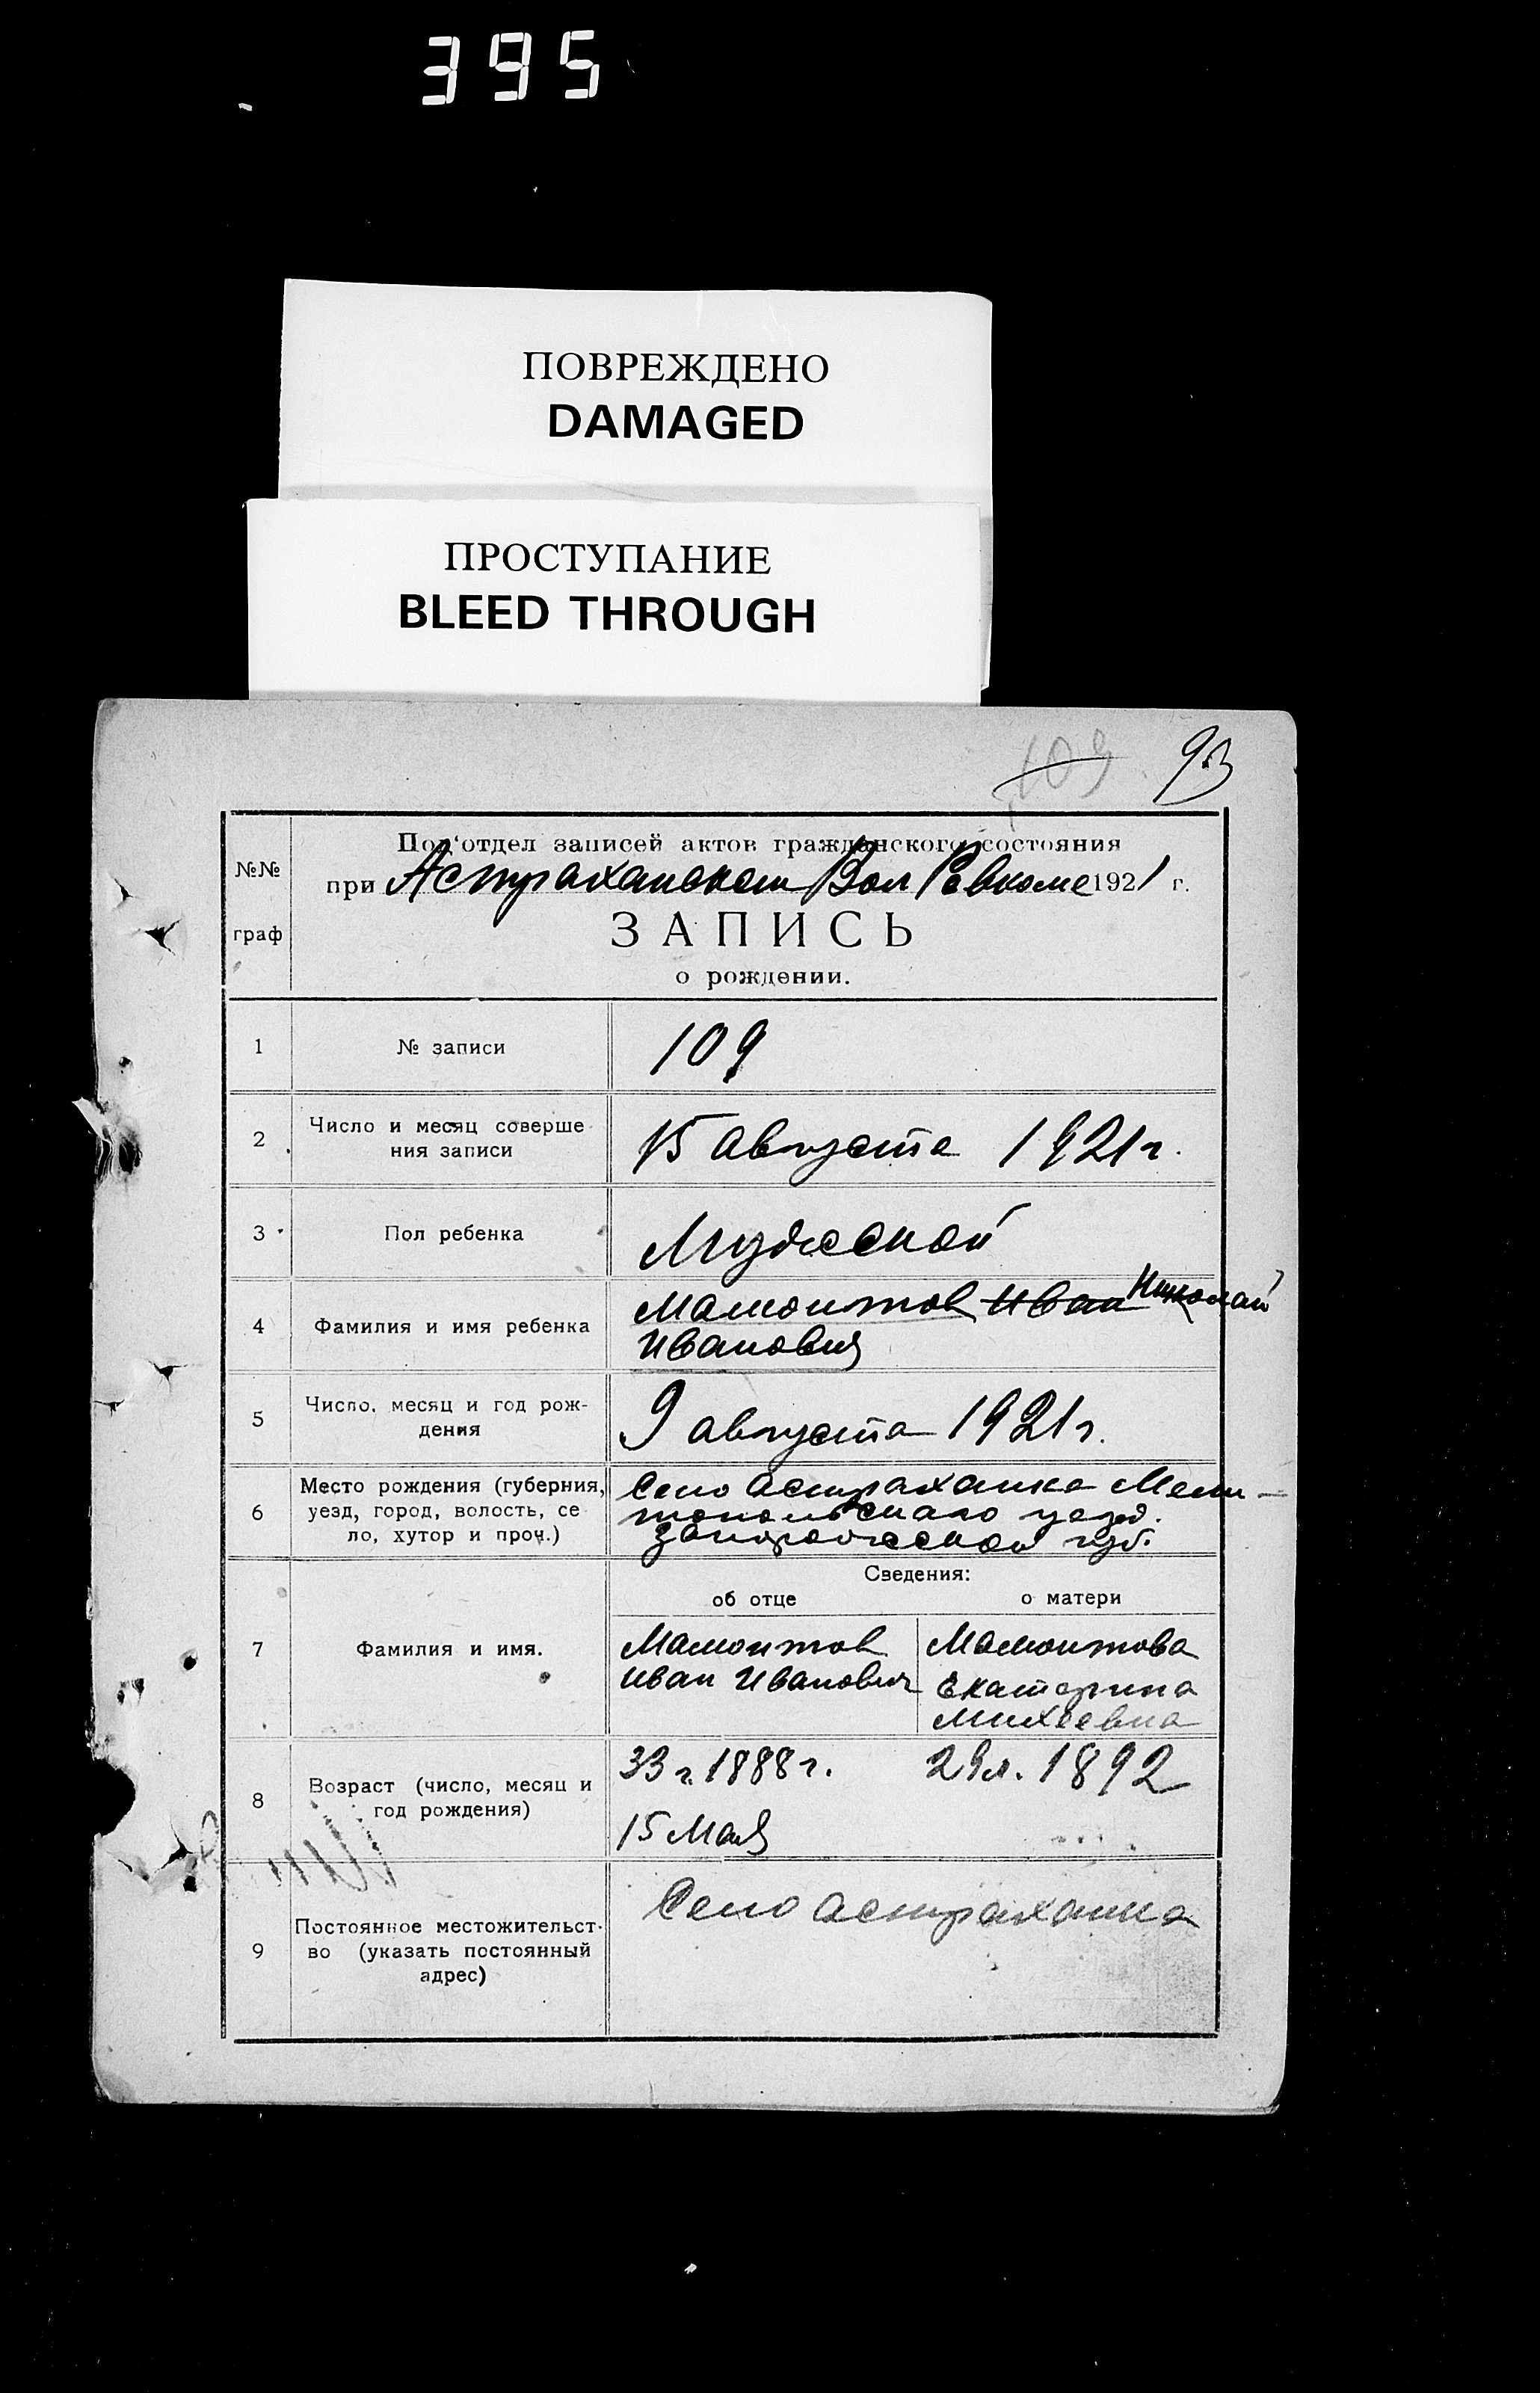 395
ПОВРЕЖДЕНО
DAMAGED
ПРОСТУПАНИЕ
BLEED THROUGH
109 93
№№ граф
Под'отдел записей актов гражданского состояния
при Астраханском Вол Ревкоме 1921 г.
ЗАПИСЬ
о рождении.
1 № записи 109
2 Число и месяц соверше
ния записи
15 августа 1921 г.
3 Пол ребенка Мужской
4 Фамилия и имя ребенка
Мамонтов Иван Николай
Иванович
5 Число, месяц и год рож-
дения
9 августа 1921 г.
6 Место рождения (губерния,
уезд, город, волость, се
ло, хутор и проч.)
Село Астраханка Мели-
топольскаго уезд.
Запорожской губ.
Сведения:
об отце о матери
7 Фамилия и имя.
Мамонтов
Иван Иванович
Мамонтова
Екатерина
Михеевна
8 Возраст (число, месяц и
год рождения)
33 г. 1888 г.
15 Мая
29 л. 1892
9 Постоянное местожительст-
во (указать постоянный
адрес)
Село Астраханка